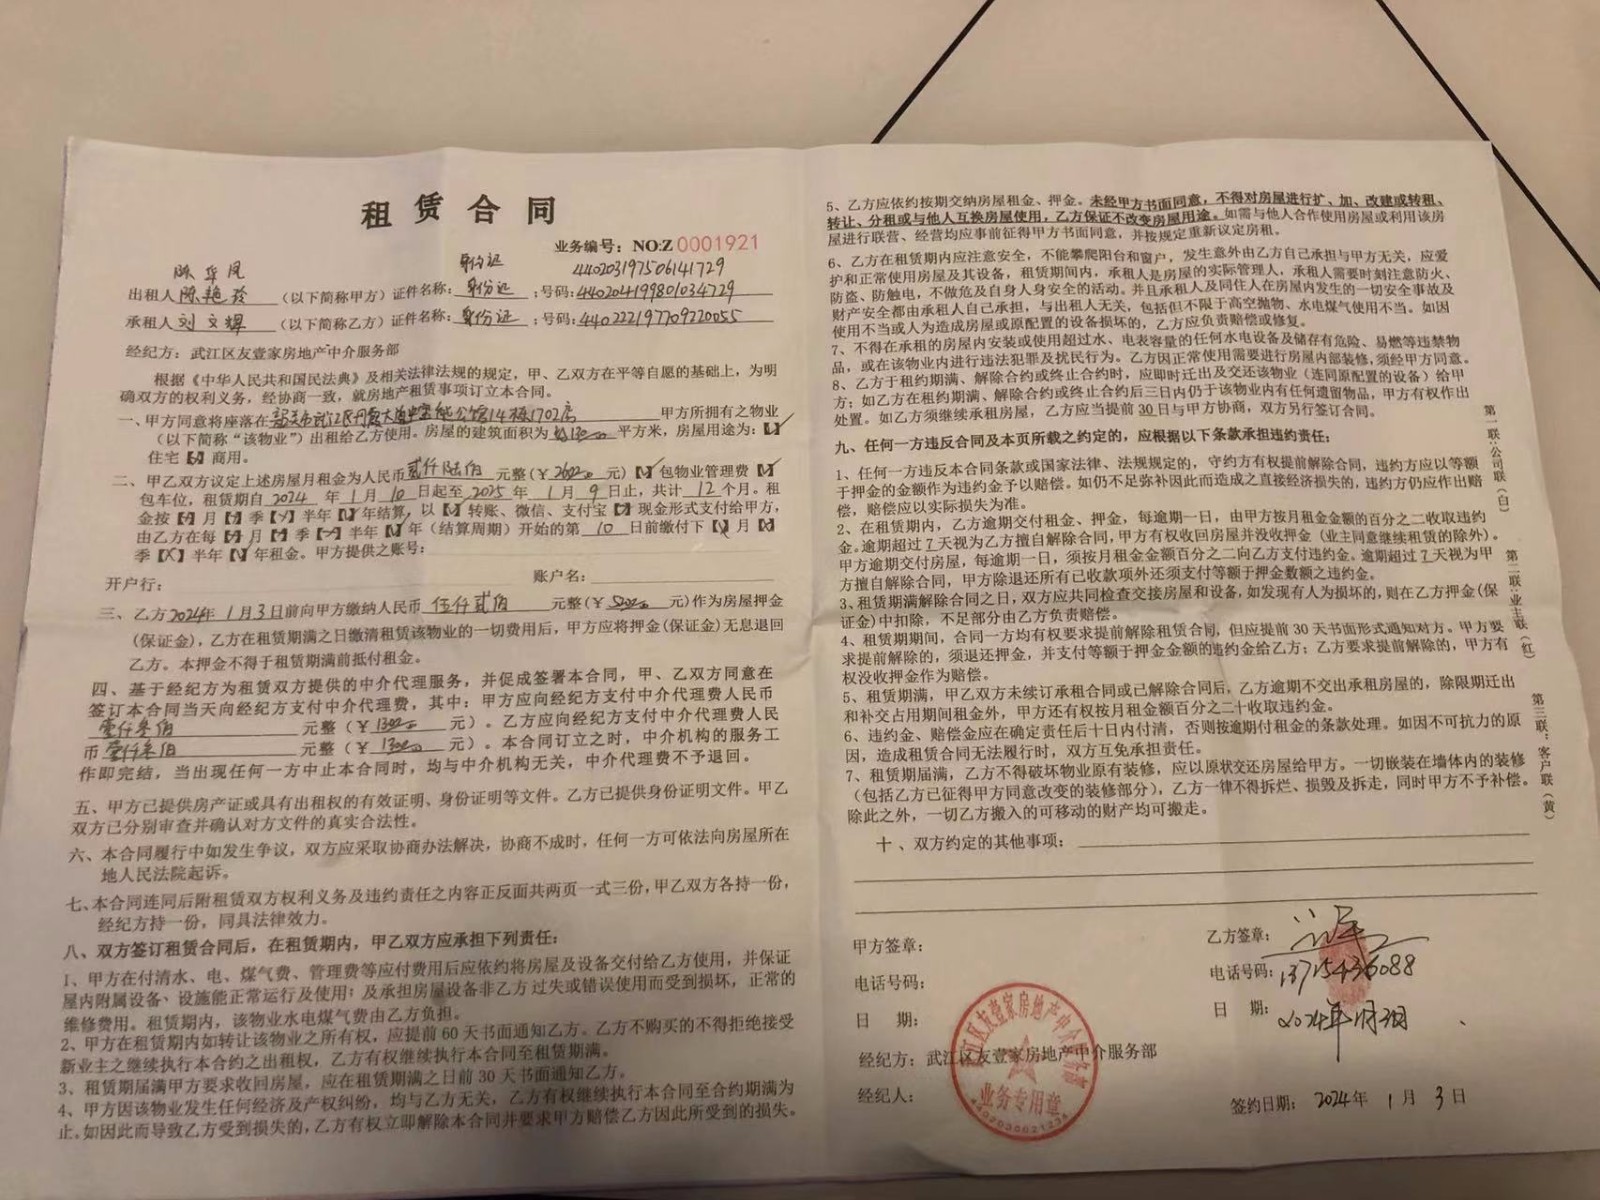 租赁合同
业务编号：NO:Z 0001921
陈华凤 身份证 440203197506141729
出租人 陈艳玲 （以下简称甲方）证件名称：身份证 ；号码：440204199801034729
承租人 刘文辉 （以下简称乙方）证件名称：身份证 ；号码：440222197709220055
经纪方：武江区友壹家房地产中介服务部
根据《中华人民共和国民法典》及相关法律法规的规定，甲、乙双方在平等自愿的基础上，为明
确双方的权利义务，经协商一致，就房地产租赁事项订立本合同。
一、甲方同意将座落在 14栋1702房 甲方所拥有之物业
（以下简称“该物业”）出租给乙方使用。房屋的建筑面积为 平方米，房屋用途为：【✓】
住宅【】商用。
二、甲乙双方议定上述房屋月租金为人民币 贰仟陆佰 元整（￥2600元）【】包物业管理费【】
包车位，租赁期自 2024 年 1 月 10 日起至 2025 年 1 月 9 日止，共计 12 个月。租
金按【】月【】季【】半年【】年结算，以【】转账、微信、支付宝【】现金形式支付给甲方，
由乙方在每【】月【】季【】半年【】年（结算周期）开始的第 10 日前缴付下【】月【】
季【】半年【】年租金。甲方提供之账号：
开户行： 账户名：
三、乙方2024年 1月3日前向甲方缴纳人民币 伍仟贰佰 元整（￥5200元）作为房屋押金
（保证金），乙方在租赁期满之日缴清租赁该物业的一切费用后，甲方应将押金（保证金）无息退回
乙方。本押金不得于租赁期满前抵付租金。
四、基于经纪方为租赁双方提供的中介代理服务，并促成签署本合同，甲、乙双方同意在
签订本合同当天向经纪方支付中介代理费，其中：甲方应向经纪方支付中介代理费人民币
壹仟叁佰 元整（￥1300 元）。乙方应向经纪方支付中介代理费人民
币 壹仟叁佰 元整（￥1300 元）。本合同订立之时，中介机构的服务工
作即完结，当出现任何一方中止本合同时，均与中介机构无关，中介代理费不予退回。
五、甲方已提供房产证或具有出租权的有效证明、身份证明等文件。乙方已提供身份证明文件。甲乙
双方已分别审查并确认对方文件的真实合法性。
六、本合同履行中如发生争议，双方应采取协商办法解决，协商不成时，任何一方可依法向房屋所在
地人民法院起诉。
七、本合同连同后附租赁双方权利义务及违约责任之内容正反面共两页一式三份，甲乙双方各持一份，
经纪方持一份，同具法律效力。
八、双方签订租赁合同后，在租赁期内，甲乙双方应承担下列责任：
1、甲方在付清水、电、煤气费、管理费等应付费用后应依约将房屋及设备交付给乙方使用，并保证
屋内附属设备、设施能正常运行及使用；及承担房屋设备非乙方过失或错误使用而受到损坏，正常的
维修费用。租赁期内，该物业水电煤气费由乙方负担。
2、甲方在租赁期内如转让该物业之所有权，应提前60天书面通知乙方。乙方不购买的不得拒绝接受
新业主之继续执行本合约之出租权，乙方有权继续执行本合同至租赁期满。
3、租赁期届满甲方要求收回房屋，应在租赁期满之日前30天书面通知乙方。
4、甲方因该物业发生任何经济及产权纠纷，均与乙方无关，乙方有权继续执行本合同至合约期满为
止。如因此而导致乙方受到损失的，乙方有权立即解除本合同并要求甲方赔偿乙方因此所受到的损失。
5、乙方应依约按期交纳房屋租金、押金。未经甲方书面同意，不得对房屋进行扩、加、改建或转租、
转让、分租或与他人互换房屋使用，乙方保证不改变房屋用途。如需与他人合作使用房屋或利用该房
屋进行联营、经营均应事前征得甲方书面同意，并按规定重新议定房租。
6、乙方在租赁期内应注意安全，不能攀爬阳台和窗户，发生意外由乙方自己承担与甲方无关，应爱
护和正常使用房屋及其设备，租赁期间内，承租人是房屋的实际管理人，承租人需要时刻注意防火、
防盗、防触电，不做危及自身人身安全的活动。并且承租人及同住人在房屋内发生的一切安全事故及
财产安全都由承租人自己承担，与出租人无关，包括但不限于高空抛物、水电煤气使用不当。如因
使用不当或人为造成房屋或原配置的设备损坏的，乙方应负责赔偿或修复。
7、不得在承租的房屋内安装或使用超过水、电表容量的任何水电设备及储存有危险、易燃等违禁物
品，或在该物业内进行违法犯罪及扰民行为。乙方因正常使用需要进行房屋内部装修，须经甲方同意。
8、乙方于租约期满、解除合约或终止合约时，应即时迁出及交还该物业（连同原配置的设备）给甲
方；如乙方在租约期满、解除合约或终止合约后三日内仍于该物业内有任何遗留物品，甲方有权作出
处置。如乙方须继续承租房屋，乙方应当提前30日与甲方协商，双方另行签订合同。
九、任何一方违反合同及本页所载之约定的，应根据以下条款承担违约责任：
1、任何一方违反本合同条款或国家法律、法规规定的，守约方有权提前解除合同，违约方应以等额
于押金的金额作为违约金予以赔偿。如仍不足弥补因此而造成之直接经济损失的，违约方仍应作出赔
偿，赔偿应以实际损失为准。
2、在租赁期内，乙方逾期交付租金、押金，每逾期一日，由甲方按月租金金额的百分之二收取违约
金。逾期超过7天视为乙方擅自解除合同，甲方有权收回房屋并没收押金（业主同意继续租赁的除外）。
甲方逾期交付房屋，每逾期一日，须按月租金金额百分之二向乙方支付违约金。逾期超过7天视为甲
方擅自解除合同，甲方除退还所有已收款项外还须支付等额于押金数额之违约金。
3、租赁期满解除合同之日，双方应共同检查交接房屋和设备，如发现有人为损坏的，则在乙方押金（保
证金）中扣除，不足部分由乙方负责赔偿。
4、租赁期期间，合同一方均有权要求提前解除租赁合同，但应提前30天书面形式通知对方。甲方要
求提前解除的，须退还押金，并支付等额于押金金额的违约金给乙方；乙方要求提前解除的，甲方有
权没收押金作为赔偿。
5、租赁期满，甲乙双方未续订承租合同或已解除合同后，乙方逾期不交出承租房屋的，除限期迁出
和补交占用期间租金外，甲方还有权按月租金额百分之二十收取违约金。
6、违约金、赔偿金应在确定责任后十日内付清，否则按逾期付租金的条款处理。如因不可抗力的原
因，造成租赁合同无法履行时，双方互免承担责任。
7、租赁期届满，乙方不得破坏物业原有装修，应以原状交还房屋给甲方。一切嵌装在墙体内的装修
（包括乙方已征得甲方同意改变的装修部分），乙方一律不得拆烂、损毁及拆走，同时甲方不予补偿。
除此之外，一切乙方搬入的可移动的财产均可搬走。
十、双方约定的其他事项：
甲方签章： 乙方签章：
电话号码： 电话号码：13715436088
日 期： 日 期：2024年1月3日
经纪方：武江区友壹家房地产中介服务部
经纪人：
签约日期： 2024年 1月 3日
武江区友壹家房地产中介服务部
业务专用章
第一联：公司联（白）
第二联：业主联（红）
第三联：客户联（黄）